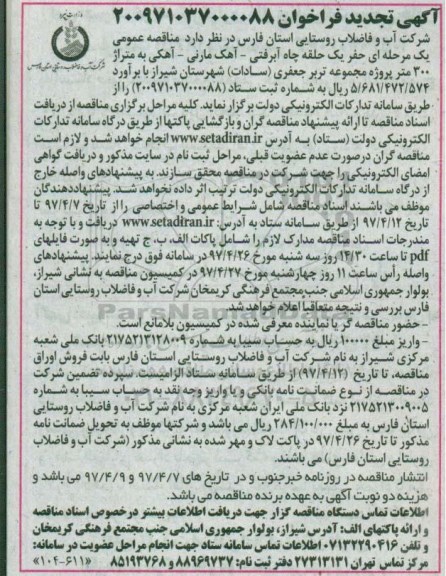 آگهی تجدید فراخوان ۲۰۰۹۷۱۰۳۷۰۰۰۰۸۸
شرکت آب و فاضلاب روستایی استان فارس در نظر دارد مناقصه عمومی
یک مرحله ای حفر یک حلقه چاه آبرفتی - آهک مارنی - آهکی به متراژ
۳۰۰ متر پروژه مجموعه تربر جعفری (سادات) شهرستان شیراز با برآورد
۵/۶۸۱/۴۷۲/۵۷۴ ریال به شماره ثبت ستاد (۲۰۰۹۷۱۰۳۷۰۰۰۰۸۸) را از
طریق سامانه تدارکات الکترونیکی دولت برگزار نماید. کلیه مراحل برگزاری مناقصه از دریافت
اسناد مناقصه تا ارائه پیشنهاد مناقصه گران و بازگشایی پاکتها از طریق درگاه سامانه تدارکات
الکترونیکی دولت (ستاد) به آدرس www.setadiran.ir انجام خواهد شد و لازم است
مناقصه گران درصورت عدم عضویت قبلی، مراحل ثبت نام در سایت مذکور و دریافت گواهی
امضای الکترونیکی را جهت شرکت در مناقصه محقق سازند. به پیشنهادهای واصله خارج
از درگاه سامانه تدارکات الکترونیکی دولت ترتیب اثر داده نخواهد شد. پیشنهاددهندگان
موظف می باشند اسناد مناقصه شامل شرایط عمومی و اختصاصی را از تاریخ ۹۷/۴/۷ تا
تاریخ ۹۷/۴/۱۲ از طریق سامانه ستاد به آدرس www.setadiran.ir دریافت و با توجه به
مندرجات اسناد مناقصه مدارک لازم را شامل پاکات الف، ب، ج تهیه و به صورت فایلهای
pdf تا ساعت ۱۴/۳۰ روز سه شنبه مورخ ۹۷/۴/۲۶ در سامانه فوق درج نمایند. پیشنهادهای
واصله رأس ساعت ۱۱ روز چهارشنبه مورخ ۹۷/۴/۲۷ در کمیسیون مناقصه به نشانی شیراز،
بولوار جمهوری اسلامی جنب مجتمع فرهنگی کریمخان شرکت آب و فاضلاب روستایی استان
فارس بررسی و نتیجه متعاقبا اعلام خواهد شد.
- حضور مناقصه گر یا نماینده معرفی شده در کمیسیون بلامانع است.
- واریز مبلغ ۱۰۰۰۰۰ ریال به حساب سیبا به شماره ۲۱۷۵۲۱۳۱۲۸۰۰۹ بانک ملی شعبه
مرکزی شیراز به نام شرکت آب و فاضلاب روستایی استان فارس بابت فروش اوراق
مناقصه، تا تاریخ (۹۷/۴/۱۲) از طریق سامانه ستاد الزامیست. سپرده تضمین شرکت
در مناقصه از نوع ضمانت نامه بانکی و یا واریز وجه نقد به حساب سیبا به شماره
۲۱۷۵۲۱۳۰۰۹۰۰۵ نزد بانک ملی ایران شعبه مرکزی به نام شرکت آب و فاضلاب روستایی
استان فارس به مبلغ ۲۸۴/۱۰۰/۰۰۰ ریال می باشد و شرکتها موظف به تحویل ضمانت نامه
مذکور تا تاریخ ۹۷/۴/۲۶ در پاکت لاک و مهر شده به نشانی مذکور (شرکت آب و فاضلاب
روستایی استان فارس) می باشند.
انتشار مناقصه در روزنامه خبرجنوب و در تاریخ های ۹۷/۴/۷ و ۹۷/۴/۹ می باشد و
هزینه دو نوبت آگهی به عهده برنده مناقصه می باشد.
اطلاعات تماس دستگاه مناقصه گزار جهت دریافت اطلاعات بیشتر درخصوص اسناد مناقصه
و ارائه پاکتهای الف: آدرس شیراز، بولوار جمهوری اسلامی جنب مجتمع فرهنگی کریمخان
و تلفن ۰۷۱۳۲۲۹۰۴۱۶ اطلاعات تماس سامانه ستاد جهت انجام مراحل عضویت در سامانه:
مرکز تماس تهران ۲۷۳۱۳۱۳۱ دفتر ثبت نام: ۸۸۹۶۹۷۳۷ و ۸۵۱۹۳۷۶۸ «۱۰۴-۶۱۱»